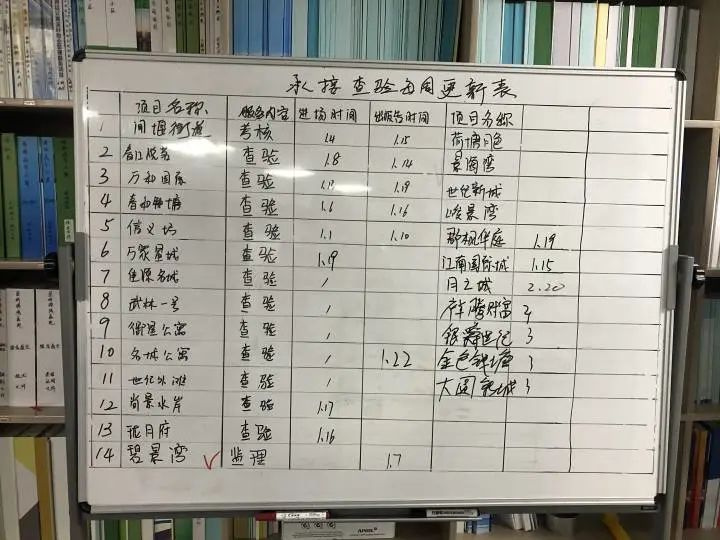 承接查验每周更新表
项目名称 服务内容 进场时间 出报告时间 项目名称
1 闻堰街道 考核 1.4 1.15 荷塘月色
2 春江悦茗 查验 1.8 1.14 景海湾
3 万和国际 查验 1.19 世纪新城
4 春和钱塘 查验 1.6 1.16 峻景湾
5 信义坊 查验 1.1 1.10 郡枫华庭 1.19
6 万家星城 查验 1.19 江南国际城 1.15
7 佳源名城 查验 / 月之城 2.20
8 武林一号 查验 / 财富 2
9 街道公寓 查验 / 银爵世纪 3
10 名城公寓 查验 / 1.22 金色钱塘 3
11 世纪外滩 查验 / 大圆 城 3
12 尚景水岸 查验 1.17
13 珑月府 查验 1.16
14 碧景湾 √ 监理 1.7